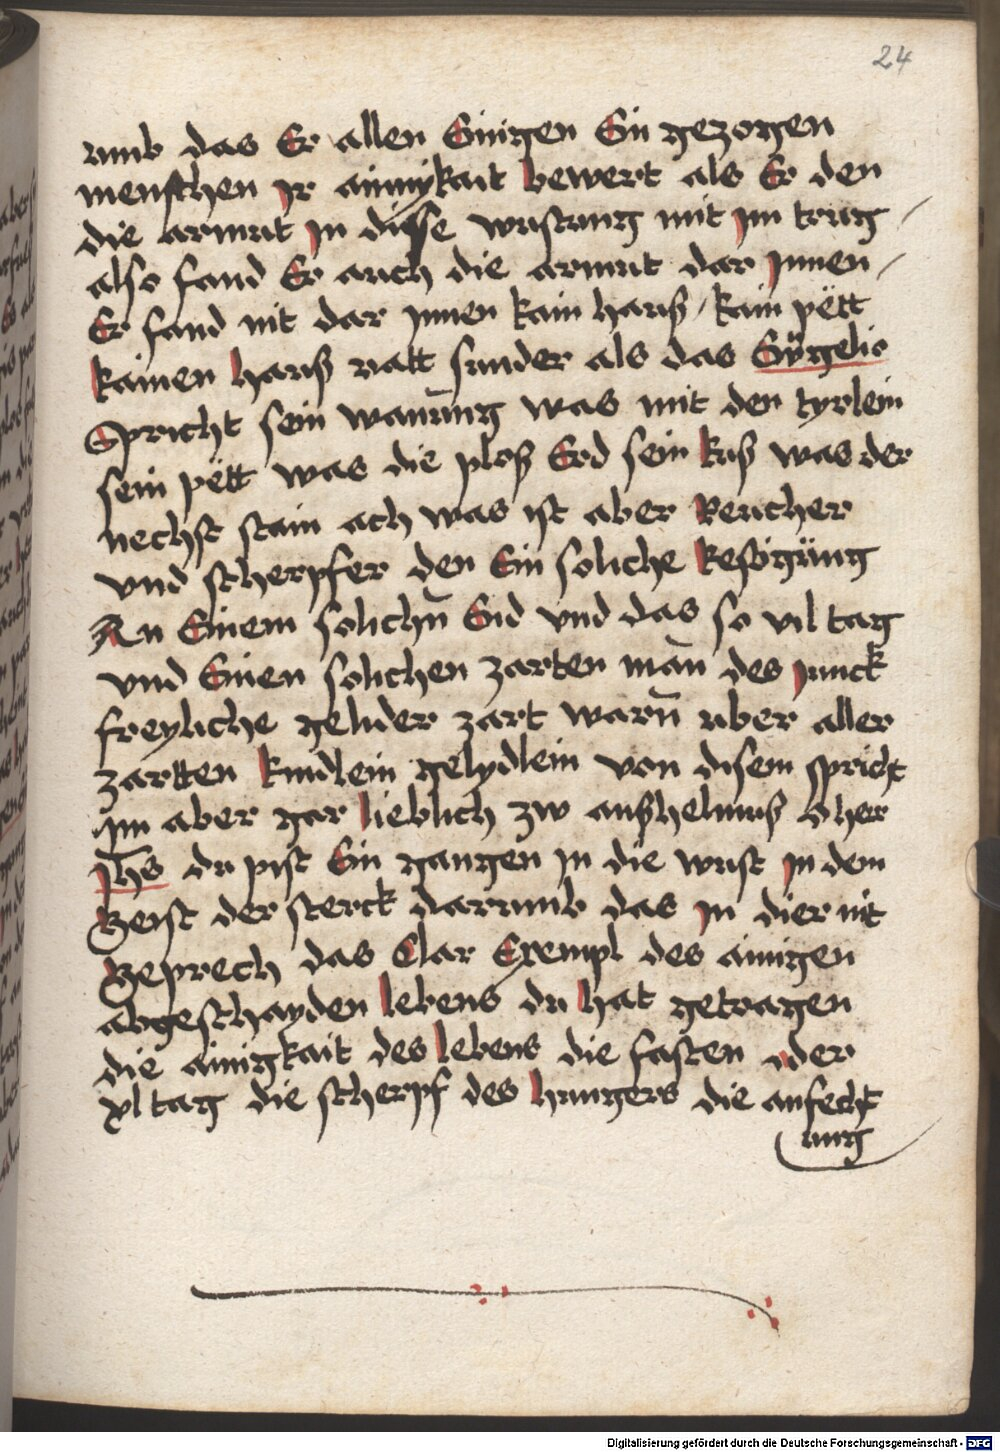 24
umb das Er allen Einigen Ein gezogen
menschen jr ainnykait bewert als Er den
die armut jn disse wustung mit jm trug /
also fand Er auch die armut dar jnnen /
Er fand nit dar jnnen kain hauß / kain pëtt
kainen hauß ratt sunder als das Ewgelio
Spricht sein wanūng was mit den tyrlein
sein pëtt was die ploß Erd sein kuß was der
nechst stain ach was ist aber Reucher
vnd scherpfer den Ein soliche kestigüng
An Einem solichn̄ End vnd das so vil tag
vnd Einen solichen zarten man̄ des junck
freyliche gelider zart warn̄ uber aller
zartten kindlein gelydlein von disem spricht
jm aber gar lieblich zw anßhelmuß o her
jhs du pist Ein gangen jn die wust jn dem
geist der sterck darumb das jn dier nit
geprech das Clar Exempl des ainigen
abgeschayden lebens du hat getragen
die ainigkait des lebens die fasten der
xl tag die scherpf des hungers die anfecht
ung
Digitalisierung gefördert durch die Deutsche Forschungsgemeinschaft - DFG